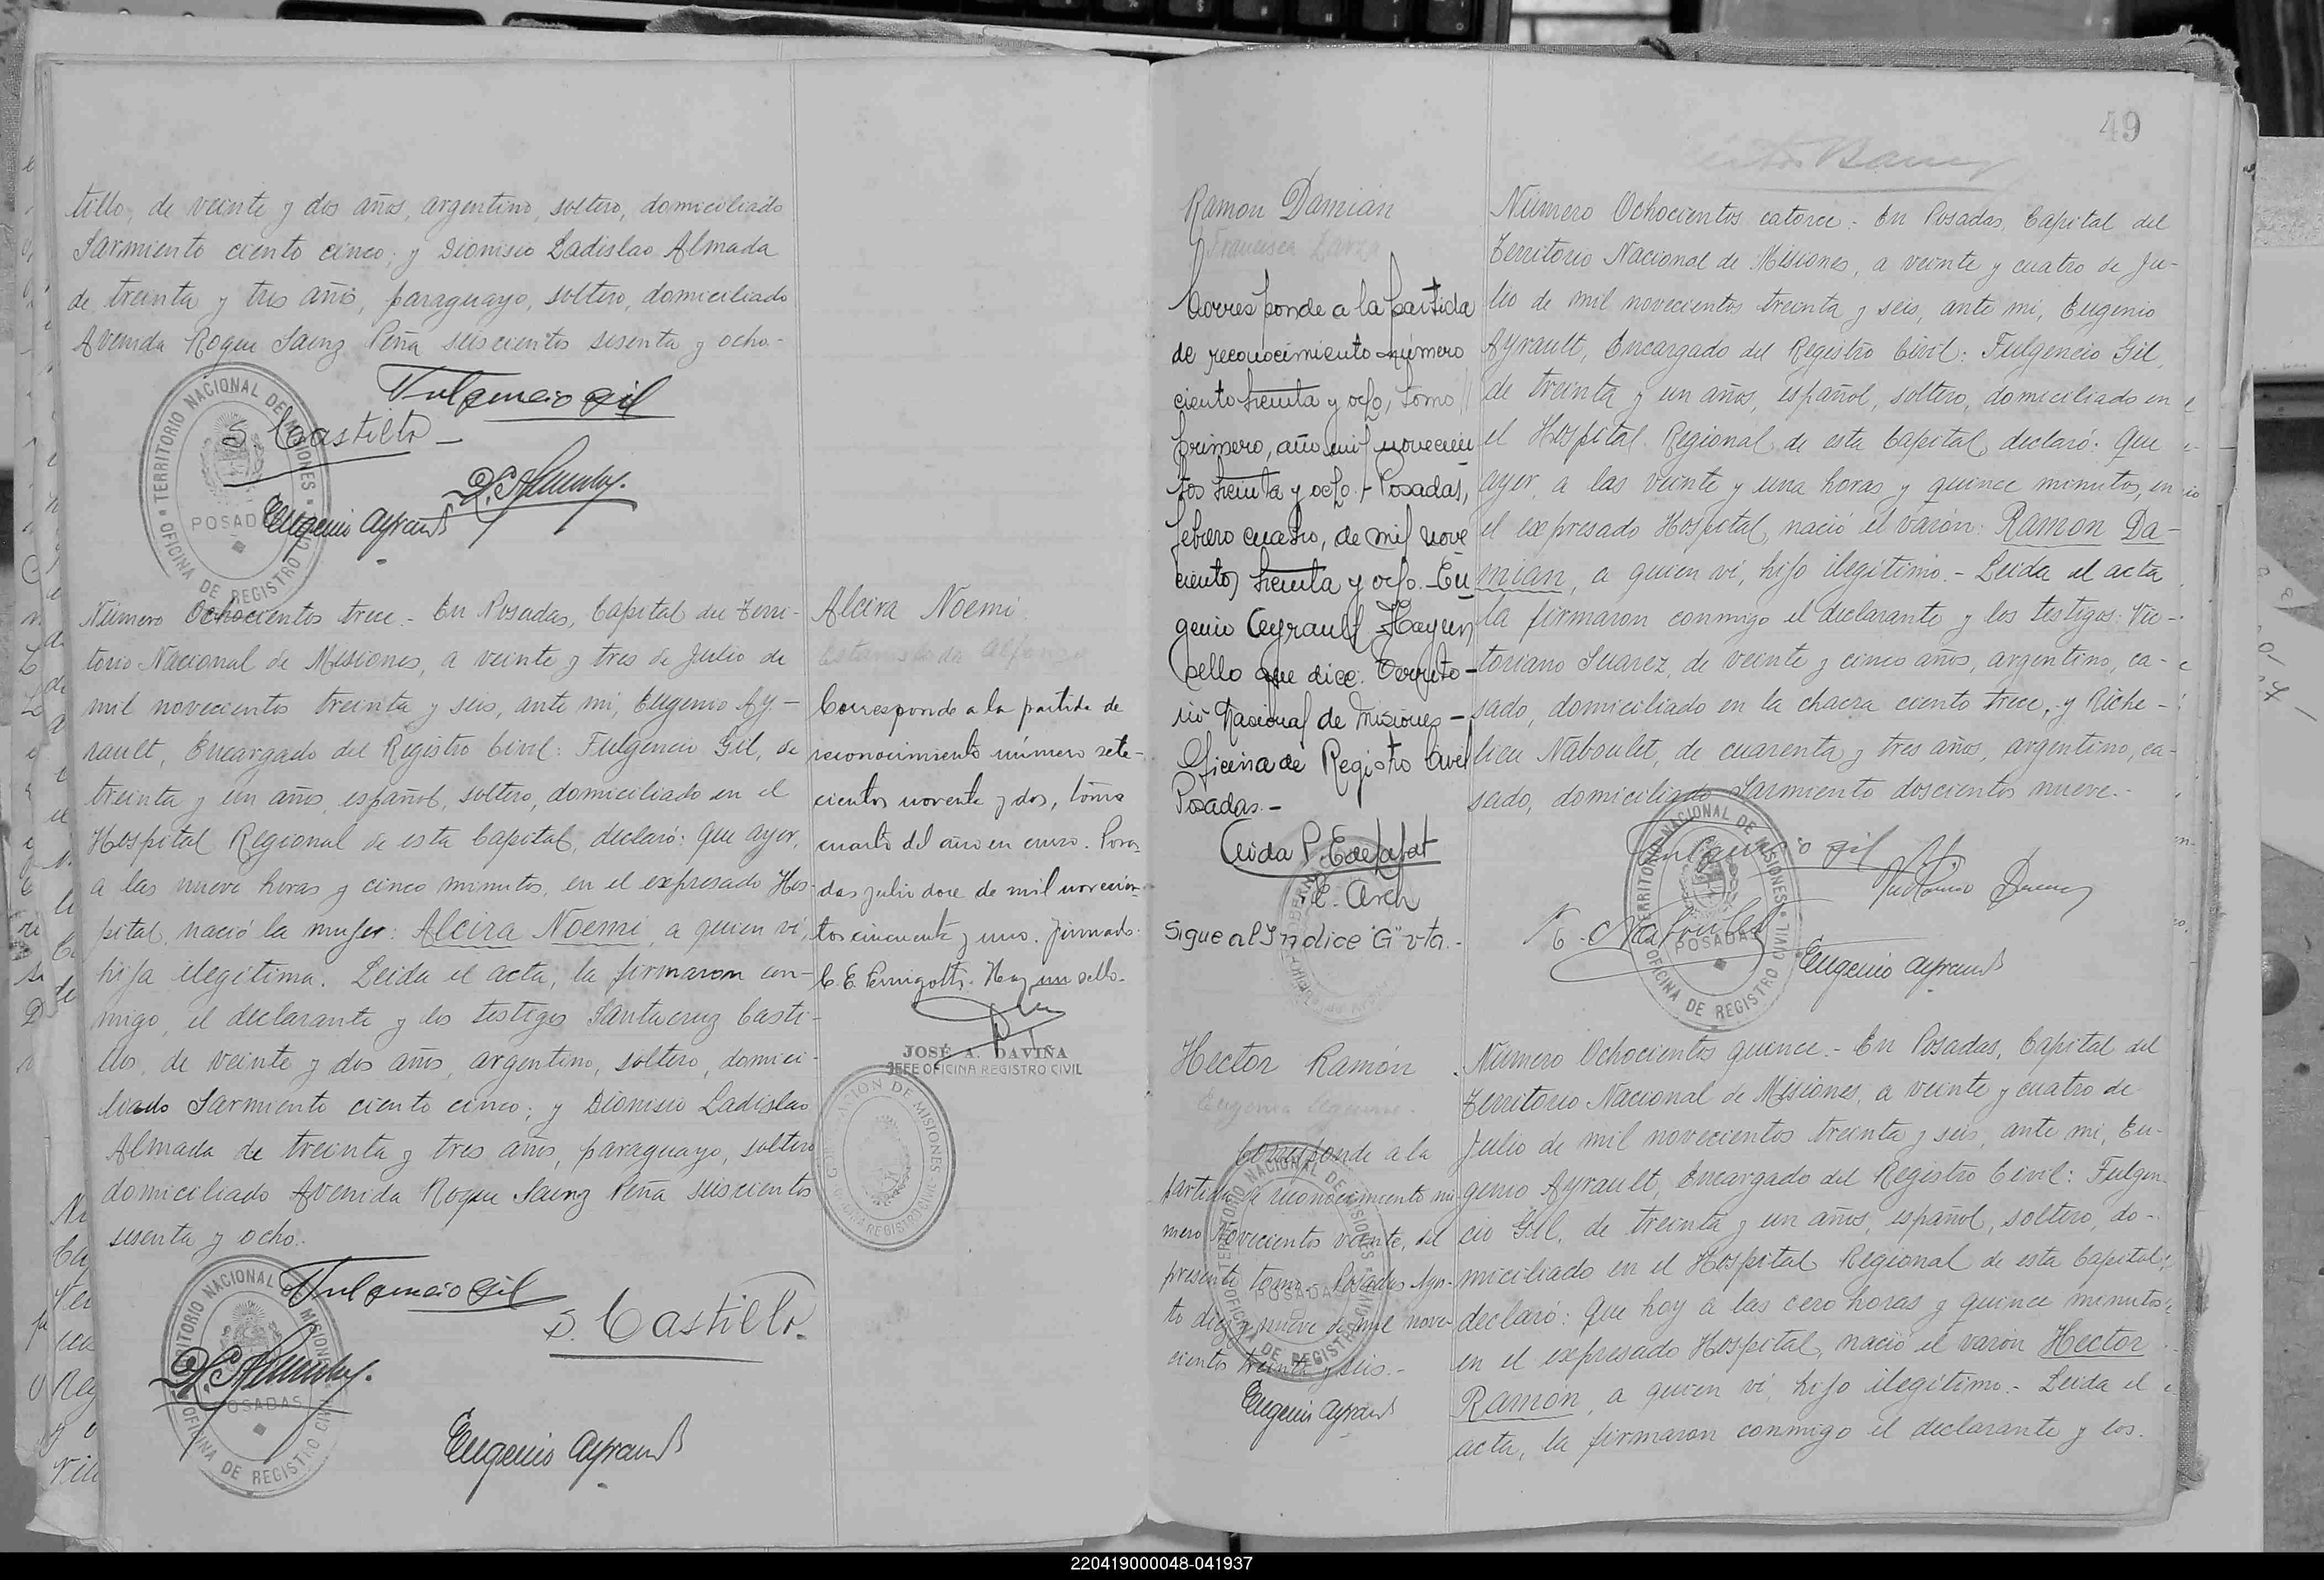 tillo, de veinte y dos años, argentino, soltero, domiciliado
Sarmiento ciento cinco; y Dionisio Ladislao Almada
de treinta y tres años, paraguayo, soltero, domiciliado
Avenida Roque Saenz Peña seiscientos sesenta y ocho.-
Fulgencio Gil
S. Castillo
Eugenio Ayrault
TERRITORIO NACIONAL DE MISIONES
POSADAS
OFICINA DE REGISTRO CIVIL
Número Ochocientos trece.- En Posadas, Capital del Terri-
torio Nacional de Misiones, a veinte y tres de Julio de
mil novecientos treinta y seis, ante mi, Eugenio Ay-
rault, Encargado del Registro Civil: Fulgencio Gil, de
treinta y un años, español, soltero, domiciliado en el
Hospital Regional de esta Capital, declaró: Que ayer,
a las nueve horas y cinco minutos, en el expresado Hos-
pital, nació la mujer: Alcira Noemi, a quien vi,
hija ilegítima. Leida el acta, la firmaron con-
migo, el declarante y los testigos Santacruz Casti-
llo, de veinte y dos años, argentino, soltero, domici-
liado Sarmiento ciento cinco; y Dionisio Ladislao
Almada de treinta y tres años, paraguayo, soltero
domiciliado Avenida Roque Saenz Peña seiscientos
sesenta y ocho.
Fulgencio Gil
S. Castillo.
Eugenio Ayrault
TERRITORIO NACIONAL DE MISIONES
POSADAS
OFICINA DE REGISTRO CIVIL
Alcira Noemi
Corresponde a la partida de
reconocimiento número sete-
cientos noventa y dos, tomo
cuarto del año en curso. Posa-
das julio doce de mil novecien-
tos cincuenta y uno. Firmado:
Hay un sello.
JOSÉ A. DAVIÑA
JEFE OFICINA REGISTRO CIVIL
49
Ramon Damián
Francisca
Corresponde a la partida
de reconocimiento número
ciento treinta y ocho, tomo
primero, año mil novecien
tos treinta y ocho.- Posadas,
febrero cuatro, de mil nove
cientos treinta y ocho.- Eu
genio Ayrault Hay un
sello que dice: Territo-
rio Nacional de Misiones-
Oficina de Registro Civil
Posadas.-
Sigue al Indice "G" vta.-
Número Ochocientos catorce.- En Posadas, Capital del
Territorio Nacional de Misiones, a veinte y cuatro de Ju-
lio de mil novecientos treinta y seis, ante mi, Eugenio
Ayrault, Encargado del Registro Civil: Fulgencio Gil,
de treinta y un años, español, soltero, domiciliado en
el Hospital Regional de esta Capital, declaró: Que
ayer, a las veinte y una horas y quince minutos, en
el expresado Hospital, nació el varón: Ramon Da-
mian, a quien vi, hijo ilegítimo.- Leida el acta
la firmaron conmigo el declarante y los testigos: Vic-
toriano Suarez, de veinte y cinco años, argentino, ca-
sado, domiciliado en la chacra ciento trece, y Riche-
lieu Naboulet, de cuarenta y tres años, argentino, ca-
sado, domiciliado Sarmiento doscientos nueve.-
Fulgencio Gil
R. Naboulet
Eugenio Ayrault
TERRITORIO NACIONAL DE MISIONES
POSADAS
OFICINA DE REGISTRO CIVIL
Hector Ramón
Eugenia
Corresponde a la
partida de reconocimiento nú-
mero Novecientos veinte, del
presente tomo.- Posadas Agos-
to diez y nueve de mil nove-
cientos treinta y seis.-
Eugenio Ayrault
TERRITORIO NACIONAL DE MISIONES
POSADAS
OFICINA DE REGISTRO CIVIL
Número Ochocientos quince.- En Posadas, Capital del
Territorio Nacional de Misiones, a veinte y cuatro de
Julio de mil novecientos treinta y seis, ante mi, Eu-
genio Ayrault, Encargado del Registro Civil: Fulgen-
cio Gil, de treinta y un años, español, soltero, do-
miciliado en el Hospital Regional de esta Capital;
declaró: Que hoy a las cero horas y quince minutos
en el expresado Hospital, nació el varón Hector
Ramón, a quien vi, hijo ilegítimo.- Leida el
acta, la firmaron conmigo el declarante y los
220419000048-041937